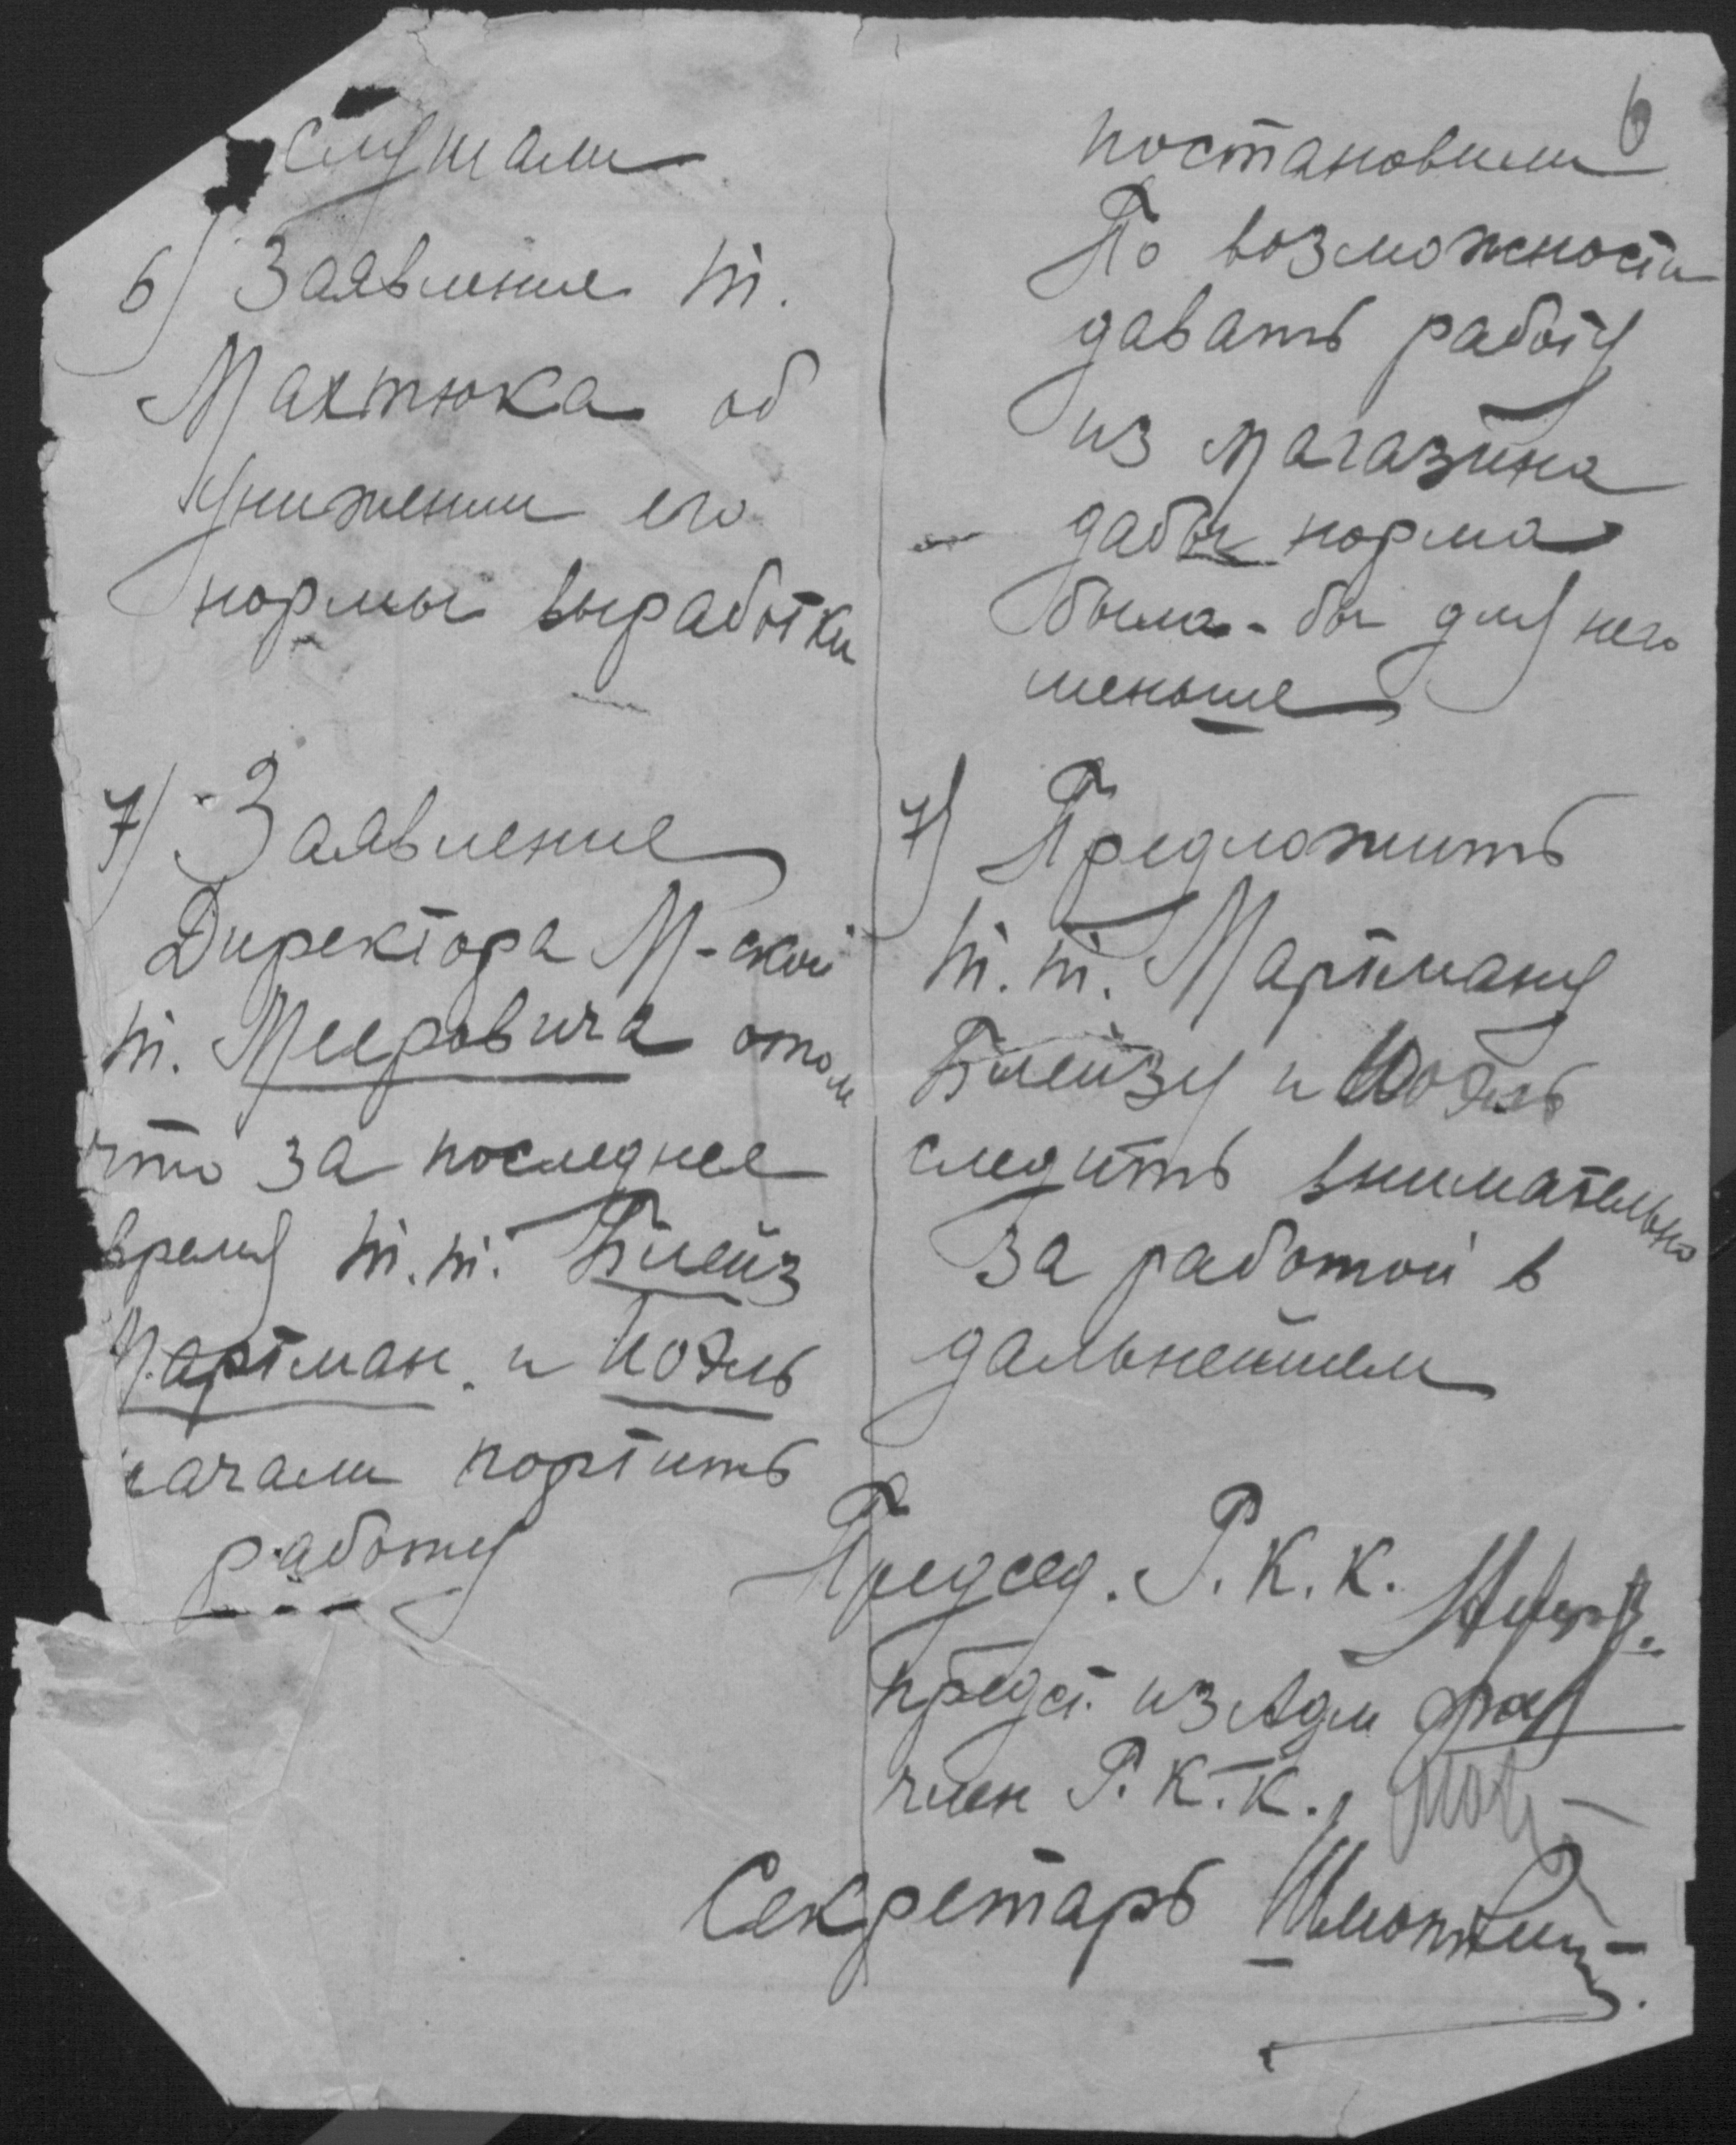 6
слушали
6) Заявление т.
Махтюка об
унижении его
нормы выработки
7) Заявление
Директора М-ской
т. Мееровича отом
что за последнее
время т.т. Блейз
Мартман. и Юдель
начали портить
работу
постановили
По возможности
давать работу
из магазина
дабы норма
была-бы для него
меньше
7) Предложить
т.т. Мартману
Блейзу и
следить внимательно
за работой в
дальнейшем
Председ. Р.К.К.
предст. из Адм
член Р.К.К.
Секретарь